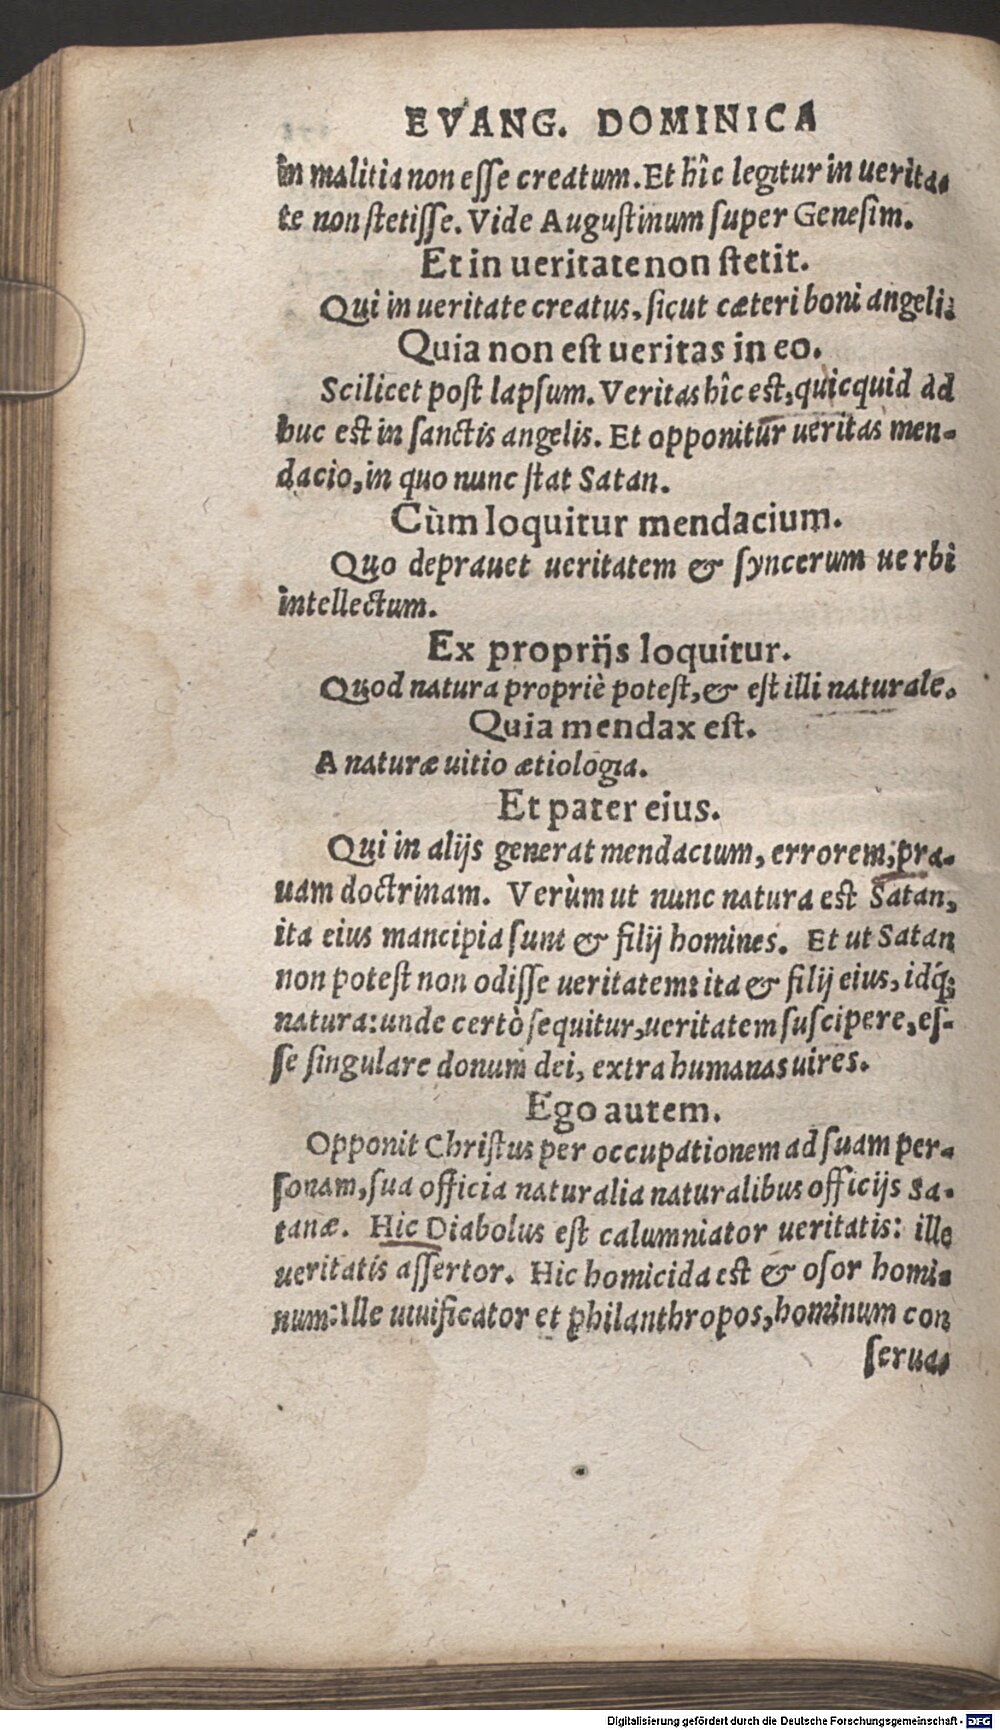 EVANG. DOMINICA
in malitia non esse creatum. Et hîc legitur in uerita-
te non stetisse. Vide Augustinum super Genesim.
Et in ueritate non stetit.
Qui in ueritate creatus, sicut cæteri boni angeli.
Quia non est ueritas in eo.
Scilicet post lapsum. Veritas hîc est, quicquid ad
huc est in sanctis angelis. Et opponitur ueritas men-
dacio, in quo nunc stat Satan.
Cùm loquitur mendacium.
Quo deprauet ueritatem & syncerum uerbi
intellectum.
Ex proprijs loquitur.
Quod natura propriè potest, & est illi naturale.
Quia mendax est.
A naturæ uitio ætiologia.
Et pater eius.
Qui in alijs generat mendacium, errorem, pra-
uam doctrinam. Verùm ut nunc natura est Satan,
ita eius mancipia sunt & filij homines. Et ut Satan
non potest non odisse ueritatem: ita & filij eius, idq́;
natura: unde certò sequitur, ueritatem suscipere, es-
se singulare donum dei, extra humanas uires.
Ego autem.
Opponit Christus per occupationem ad suam per-
sonam, sua officia naturalia naturalibus officijs Sa-
tanæ. Hic Diabolus est calumniator ueritatis: ille
ueritatis assertor. Hic homicida est & osor homi-
num: Ille uiuificator et philanthropos, hominum con
serua-
Digitalisierung gefördert durch die Deutsche Forschungsgemeinschaft - DFG